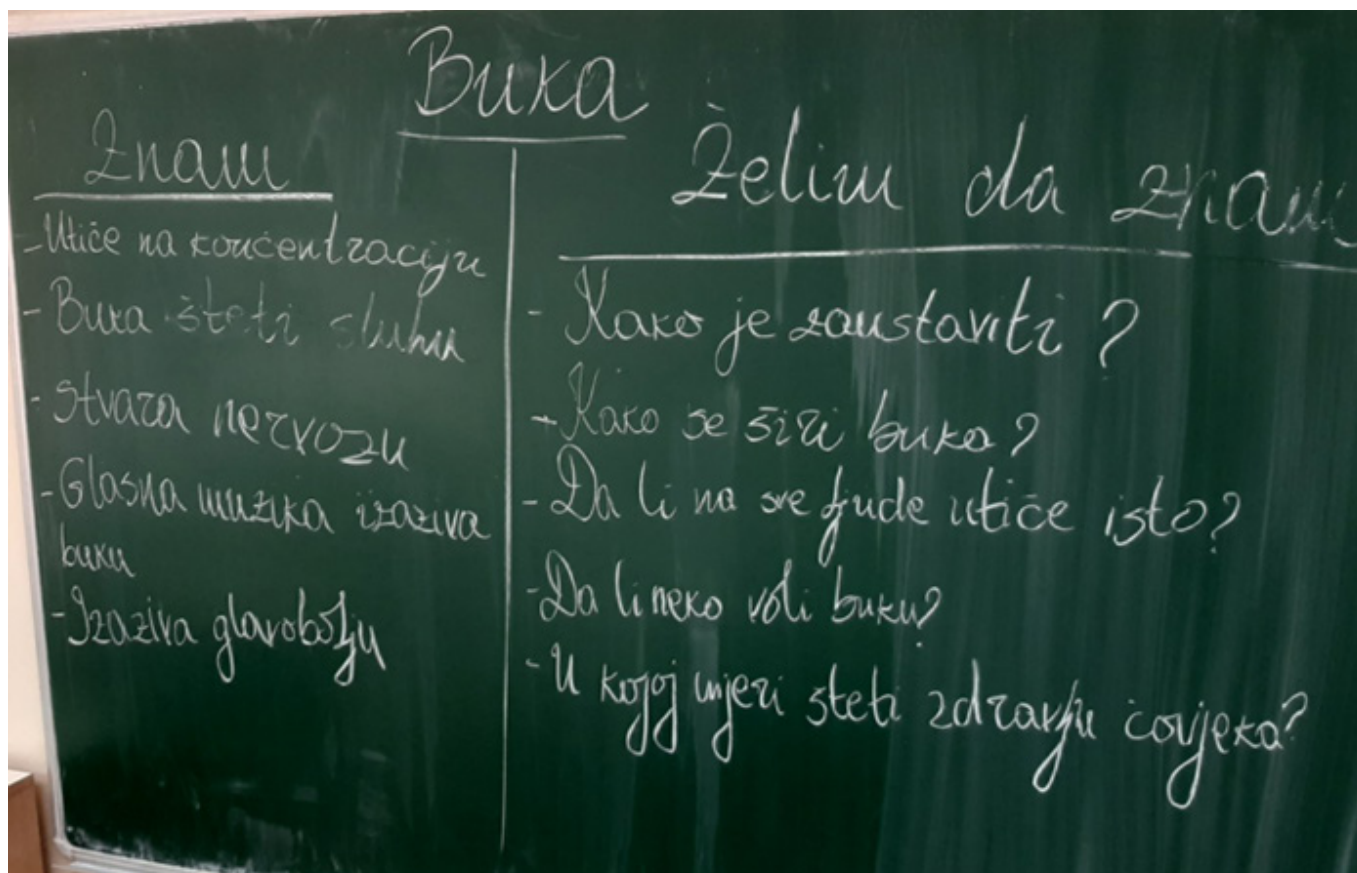 Buka
Znam
- Utiče na koncentraciju
- Buka šteti sluhu
- Stvara nervozu
- Glasna muzika izaziva
buku
- Izaziva glavobolju
Želim da znam
- Kako je zaustaviti?
- Kako se širi buka?
- Da li na sve ljude utiče isto?
- Da li neko voli buku?
- U kojoj mjeri šteti zdravlju čovjeka?